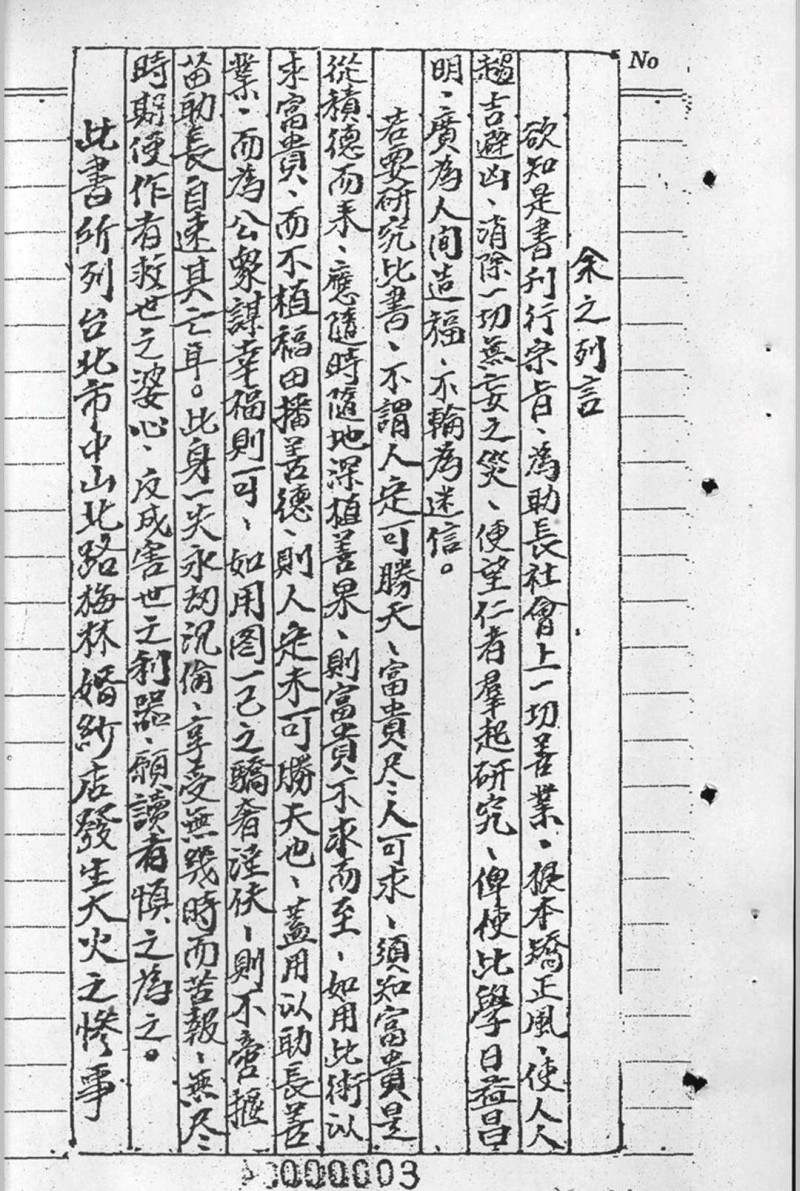 No
余之列言
欲知是書刊行宗旨、為助長社會上一切善業、根本矯正風、使人人
趨吉避凶、消除一切無妄之災、便望仁者羣起研究、俾使此學日益昌
明、廣為人間造福、不輪為迷信。
若要研究此書、不謂人定可勝天、富貴尺、人可求、須知富貴是
從積德而來、應隨時隨地深植善果、則富貴不求而至、如用此術以
求富貴、而不植福田播善德、則人定未可勝天也、蓋用以助長善
業、而為公衆謀幸福則可、如用图一己之驕奢淫佚、則不啻揠
苗助長自速其亡耳。此身一失永劫沉倫、享受無幾時而苦報、無尽
時期便作者救世之婆心、反成害世之利器、願讀者慎之為之。
此書所列台北市中山北路梅林婚紗店發生大火之慘事
000003